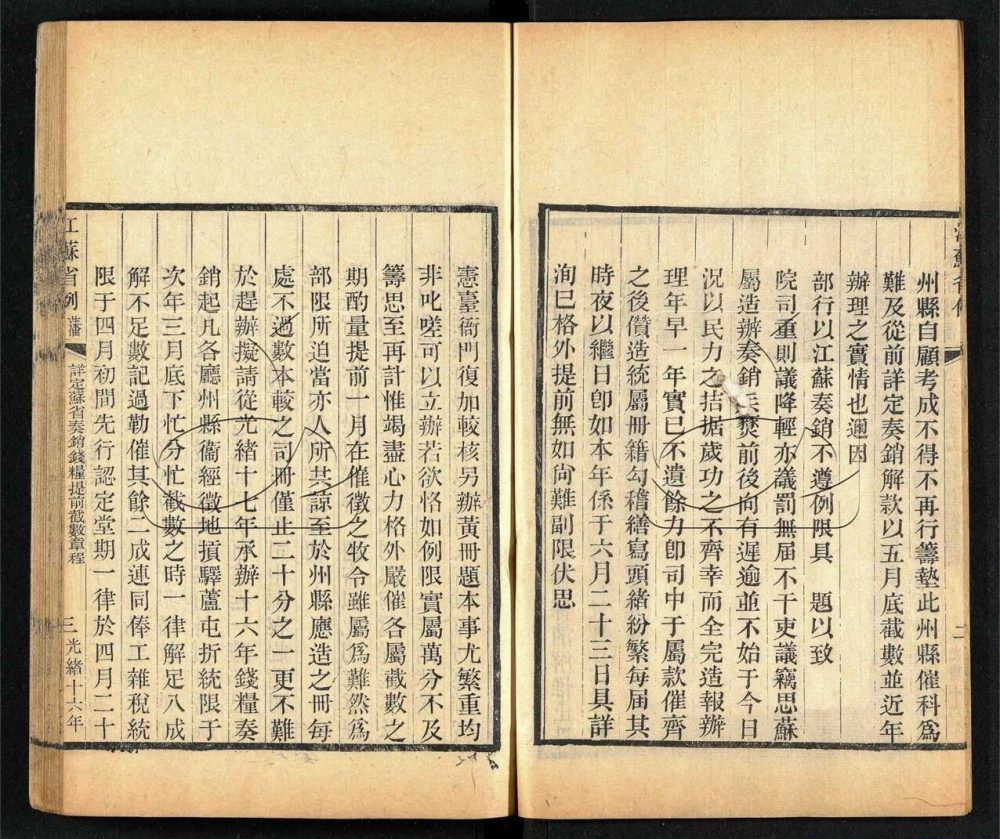 州縣自顧考成不得不再行籌墊此州縣催科爲
難及從前詳定奏銷解款以五月底截數並近年
辦理之實情也邇因
部行以江蘇奏銷不遵例限具 題以致
院司重則議降輕亦議罰無屆不干吏議竊思蘇
屬造辦奏銷 前後向有遲逾並不始于今日
況以民力之拮据歲功之不齊幸而全完造報辦
理年早一年實已不遺餘力卽司中于屬款催齊
之後儹造統屬冊籍勾稽繕寫頭緒紛繁每屆其
時夜以繼日卽如本年係于六月二十三日具詳
洵已格外提前無如尙難副限伏思
憲臺衙門復加較核另辦黃冊題本事尤繁重均
非叱嗟可以立辦若欲恪如例限實屬萬分不及
籌思至再計惟竭盡心力格外嚴催各屬截數之
期酌量提前一月在催徵之牧令雖屬爲難然爲
部限所迫當亦人所共諒至於州縣應造之冊每
處不過數本較之司冊僅止二十分之一更不難
於趕辦擬請從光緒十七年承辦十六年錢糧奏
銷起凡各廳州縣衞經徵地損驛蘆屯折統限于
次年三月底下忙分忙截數之時一律解足八成
解不足數記過勒催其餘二成連同俸工雜稅統
限于四月初間先行認定堂期一律於四月二十
江蘇省例 藩 詳定蘇省奏銷錢糧提前截數章程 三 光緒十六年